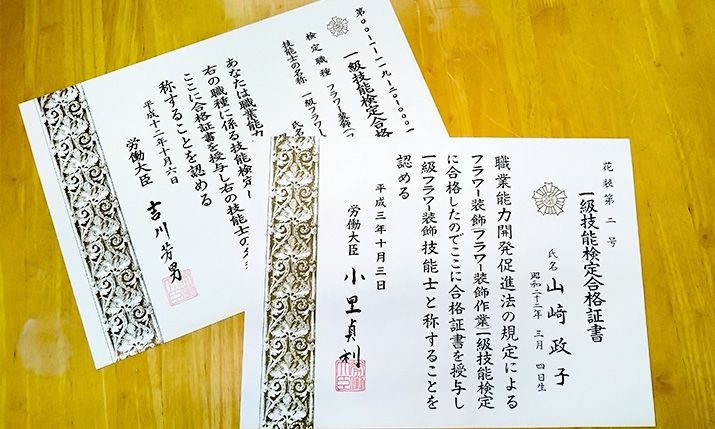 花装第二号
一級技能検定合格証書
氏名 山崎政子
昭和二十三年 三月 四日生
職業能力開発促進法の規定による
フラワー装飾(フラワー装飾作業)一級技能検定
に合格したのでここに合格証書を授与し
一級フラワー装飾技能士と称することを
認める
平成三年十月三日
労働大臣 小里貞利
一級技能検定合格
検定職種 フラワー装飾(フ
技能士の名称 一級フラワー
氏名
あなたは職業能力
右の職種に係る技能検定
ここに合格証書を授与し右の技能士の名
称することを認める
平成十二年十月六日
労働大臣 吉川芳男